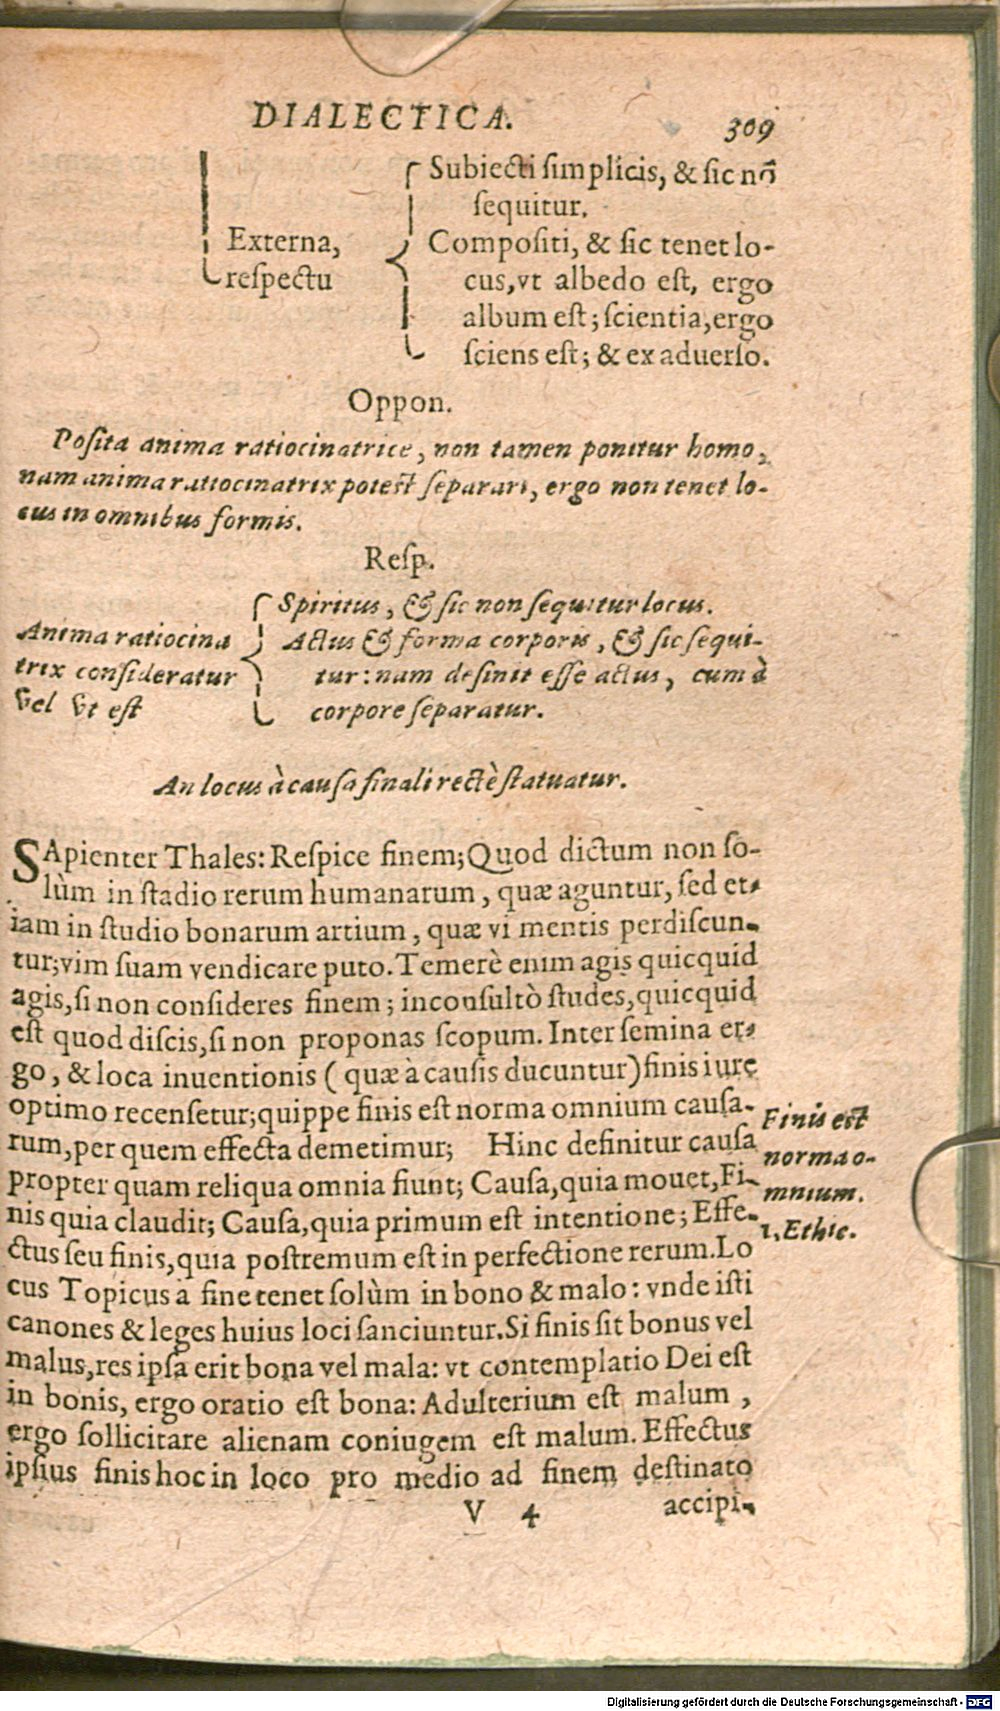 DIALECTICA. 309
Subiecti simplicis, & sic nō
sequitur.
Externa,
respectu
Compositi, & sic tenet lo-
cus, vt albedo est, ergo
album est; scientia, ergo
sciens est; & ex aduerso.
Oppon.
Posita anima ratiocinatrice, non tamen ponitur homo,
nam anima ratiocinatrix potest separari, ergo non tenet lo-
cus in omnibus formis.
Resp.
Anima ratiocina
trix consideratur
vel vt est
Spiritus, & sic non sequitur locus.
Actus & forma corporis, & sic sequi-
tur: nam desinit esse actus, cum à
corpore separatur.
An locus à causa finali rectè statuatur.
SApienter Thales: Respice finem; Quod dictum non so-
lùm in stadio rerum humanarum, quæ aguntur, sed et-
iam in studio bonarum artium, quæ vi mentis perdiscun-
tur; vim suam vendicare puto. Temerè enim agis quicquid
agis, si non consideres finem; inconsultò studes, quicquid
est quod discis, si non proponas scopum. Inter semina er-
go, & loca inuentionis (quæ à causis ducuntur) finis iure
optimo recensetur; quippe finis est norma omnium causa-
rum, per quem effecta demetimur; Hinc definitur causa
propter quam reliqua omnia fiunt; Causa, quia mouet, Fi-
nis quia claudit; Causa, quia primum est intentione; Effe-
ctus seu finis, quia postremum est in perfectione rerum. Lo
cus Topicus à fine tenet solùm in bono & malo: vnde isti
canones & leges huius loci sanciuntur. Si finis sit bonus vel
malus, res ipsa erit bona vel mala: vt contemplatio Dei est
in bonis, ergo oratio est bona: Adulterium est malum,
ergo sollicitare alienam coniugem est malum. Effectus
ipsius finis hoc in loco pro medio ad finem destinato
V 4 accipi-
Finis est
norma o-
mnium.
1. Ethic.
Digitalisierung gefördert durch die Deutsche Forschungsgemeinschaft - DFG